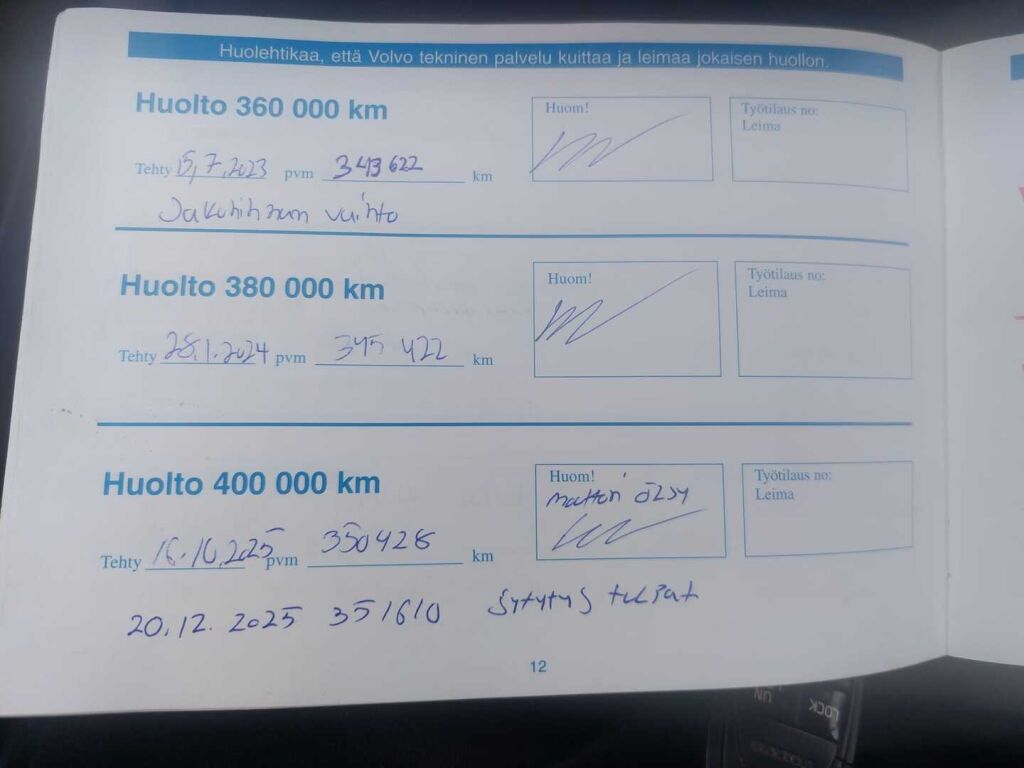 Huolehtikaa, että Volvo tekninen palvelu kuittaa ja leimaa jokaisen huollon.
Huolto 360 000 km
Huom!
Työtilaus no:
Leima
Tehty 15.7.2023 pvm 343 622 km
Jakohihnan vaihto
Huolto 380 000 km
Huom!
Työtilaus no:
Leima
Tehty 28.1.2024 pvm 345 422 km
Huolto 400 000 km
Huom!
Työtilaus no:
Leima
moottori öljy
Tehty 16.10.2025 pvm 350428 km
20.12. 2025 351610 Sytytys tulpat
12
LOCK
UN